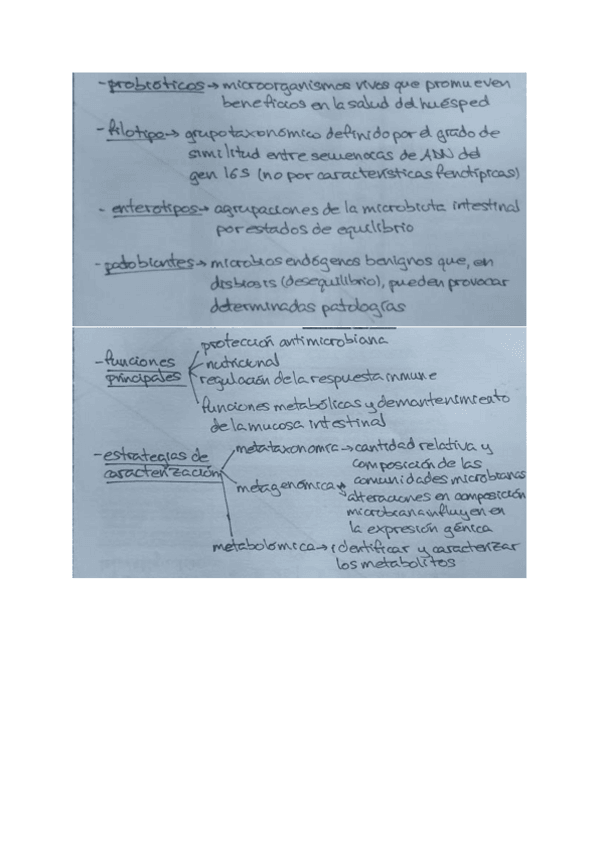 - probióticos → microorganismos vivos que promueven
beneficios en la salud del huésped
- filotipo → grupo taxonómico definido por el grado de
similitud entre secuencias de ADN del
gen 16S (no por características fenotípicas)
- enterotipos → agrupaciones de la microbiota intestinal
por estados de equilibrio
- patobiontes → microbios endógenos benignos que, en
disbiosis (desequilibrio), pueden provocar
determinadas patologías
- funciones principales
protección antimicrobiana
nutricional
regulación de la respuesta inmune
funciones metabólicas y de mantenimiento
de la mucosa intestinal
- estrategias de caracterización
metataxonomía → cantidad relativa y
composición de las
comunidades microbianas
metagenómica → alteraciones en composición
microbiana influyen en
la expresión génica
metabolómica → identificar y caracterizar
los metabolitos